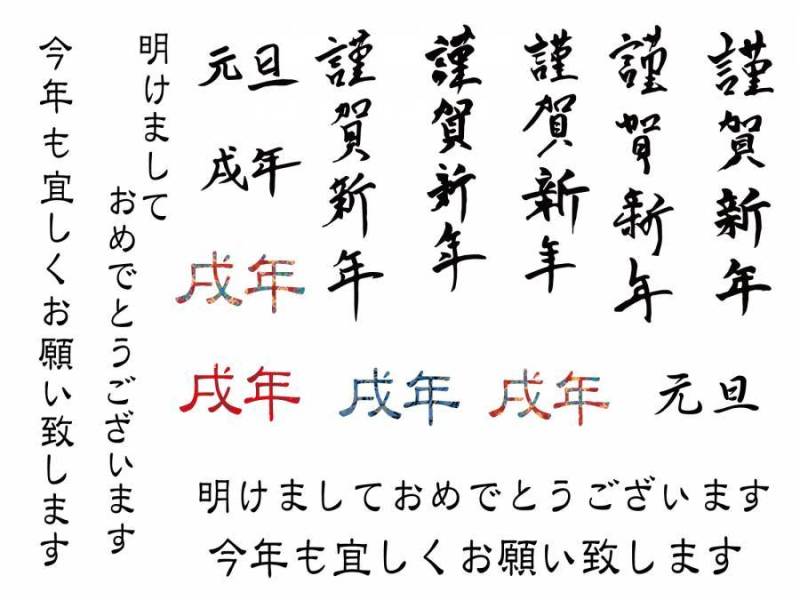 謹賀新年
謹賀新年
謹賀新年
謹賀新年
謹賀新年
元旦
戌年
戌年
戌年
戌年
戌年
元旦
明けまして
おめでとうございます
今年も宜しくお願い致します
明けましておめでとうございます
今年も宜しくお願い致します